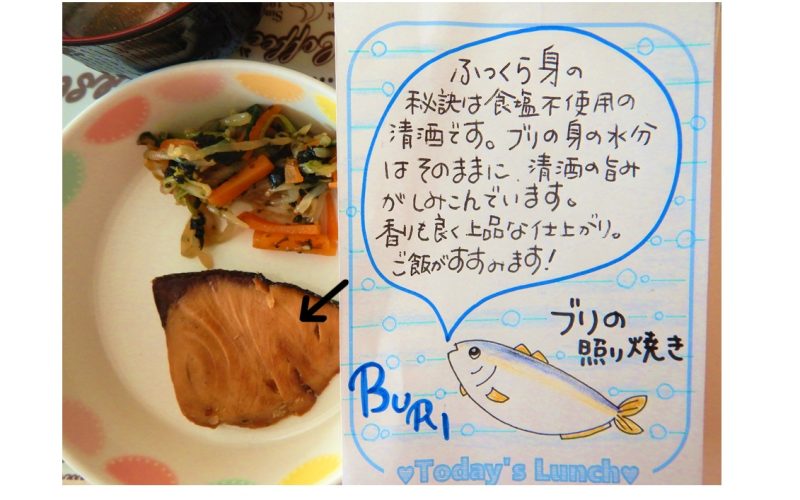 Coffee
ふっくら身の
秘訣は食塩不使用の
清酒です。ブリの身の水分
はそのままに、清酒の旨み
がしみこんでいます。
香りも良く上品な仕上がり。
ご飯がすすみます!
ブリの
照り焼き
BURI
♥Today's Lunch♥